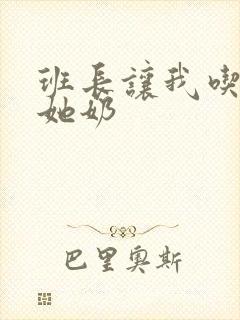 班長讓我喫
她奶
巴里奧斯